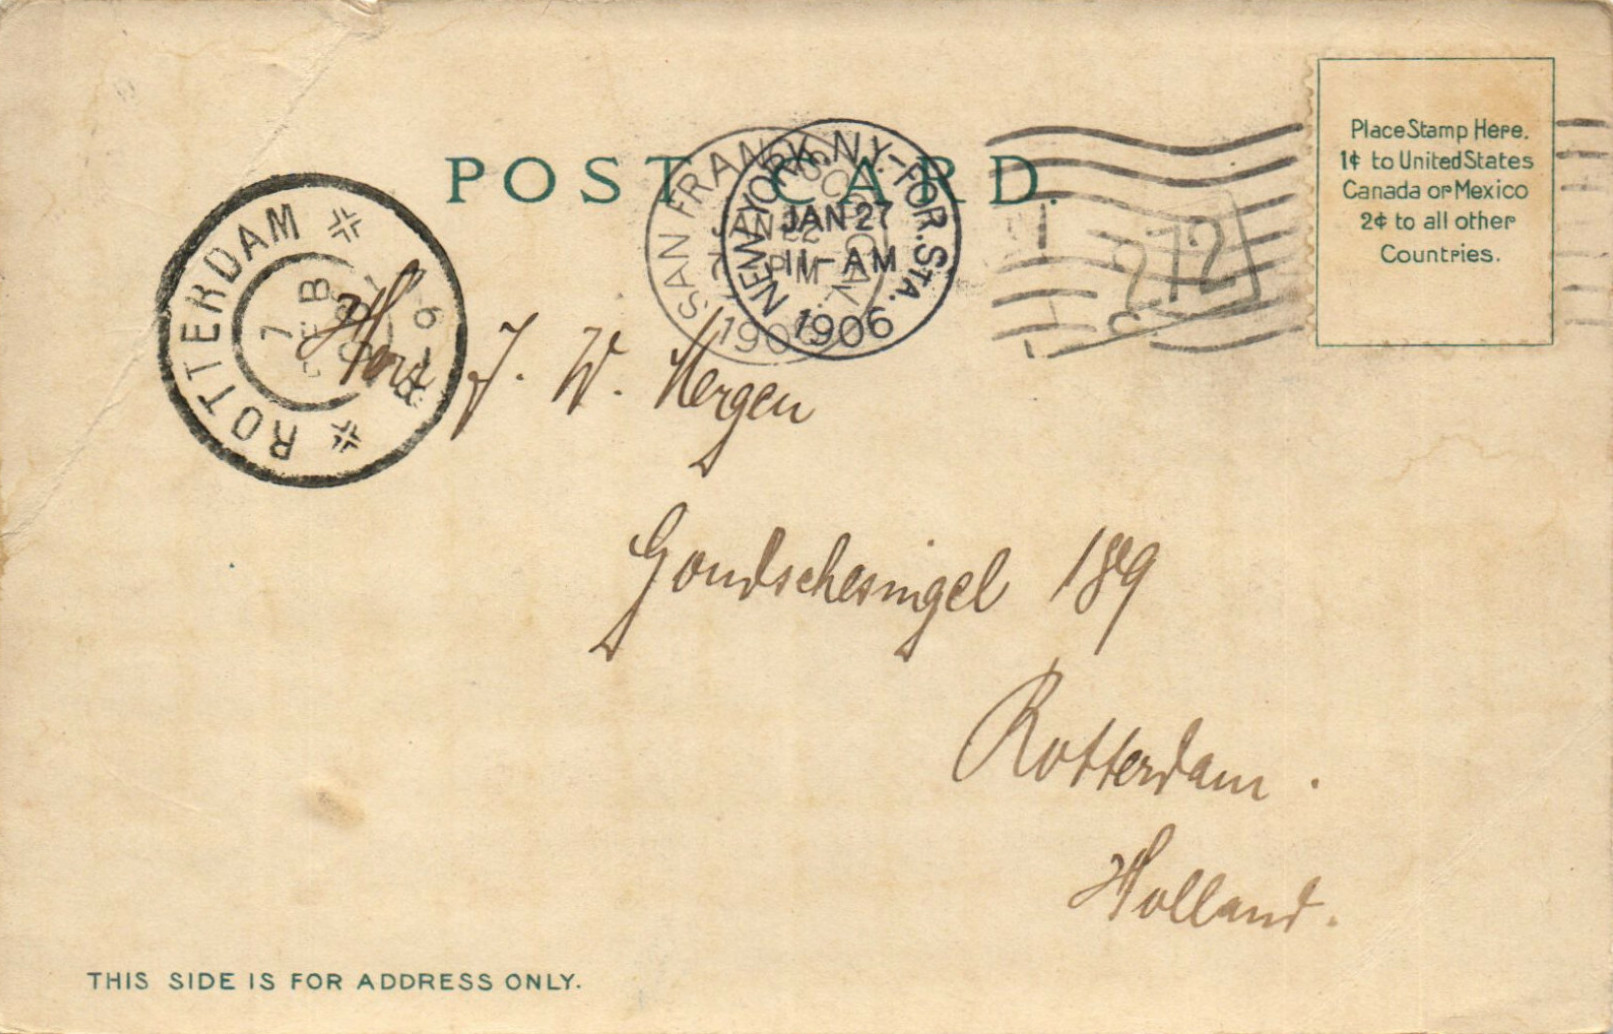 POST CARD.
SAN FRANCISCO, CAL.
JAN 22
7 PM
1906
NEW YORK, N.Y.-FOR. STA.
JAN 27
11-AM
1906
1
272
Place Stamp Here.
1¢ to United States
Canada or Mexico
2¢ to all other
Countries.
ROTTERDAM
ROTTERDAM
7 FEB
J. W. Hergen
Goudschesingel 189
Rotterdam.
Holland.
THIS SIDE IS FOR ADDRESS ONLY.